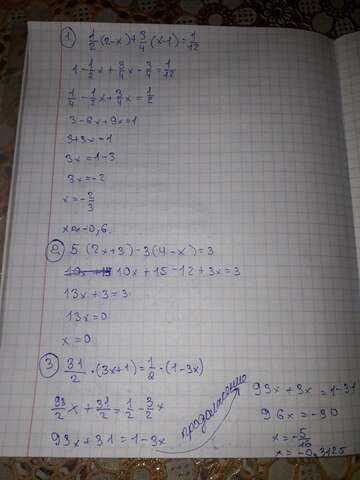 1) 1/2 (2-x) + 3/4 (x-1) = 1/12
1 - 1/2 x + 3/4 x - 3/4 = 1/12
1/4 - 1/2 x + 3/4 x = 1/2
3-6x+9x=1
3+3x=1
3x=1-3
3x=-2
x=-2/3
x≈-0,6.
2) 5 (2x+3)-3(4-x)=3
10x+15-12+3x=3
13x+3=3
13x=0
x=0
3) 31/2 · (3x+1) = 1/2 · (1-3x)
93/2 x + 31/2 = 1/2 - 3/2 x
93x+31=1-3x
продолжение
93x+3x=1-31
96x=-30
x=-5/16
x=-0,3125